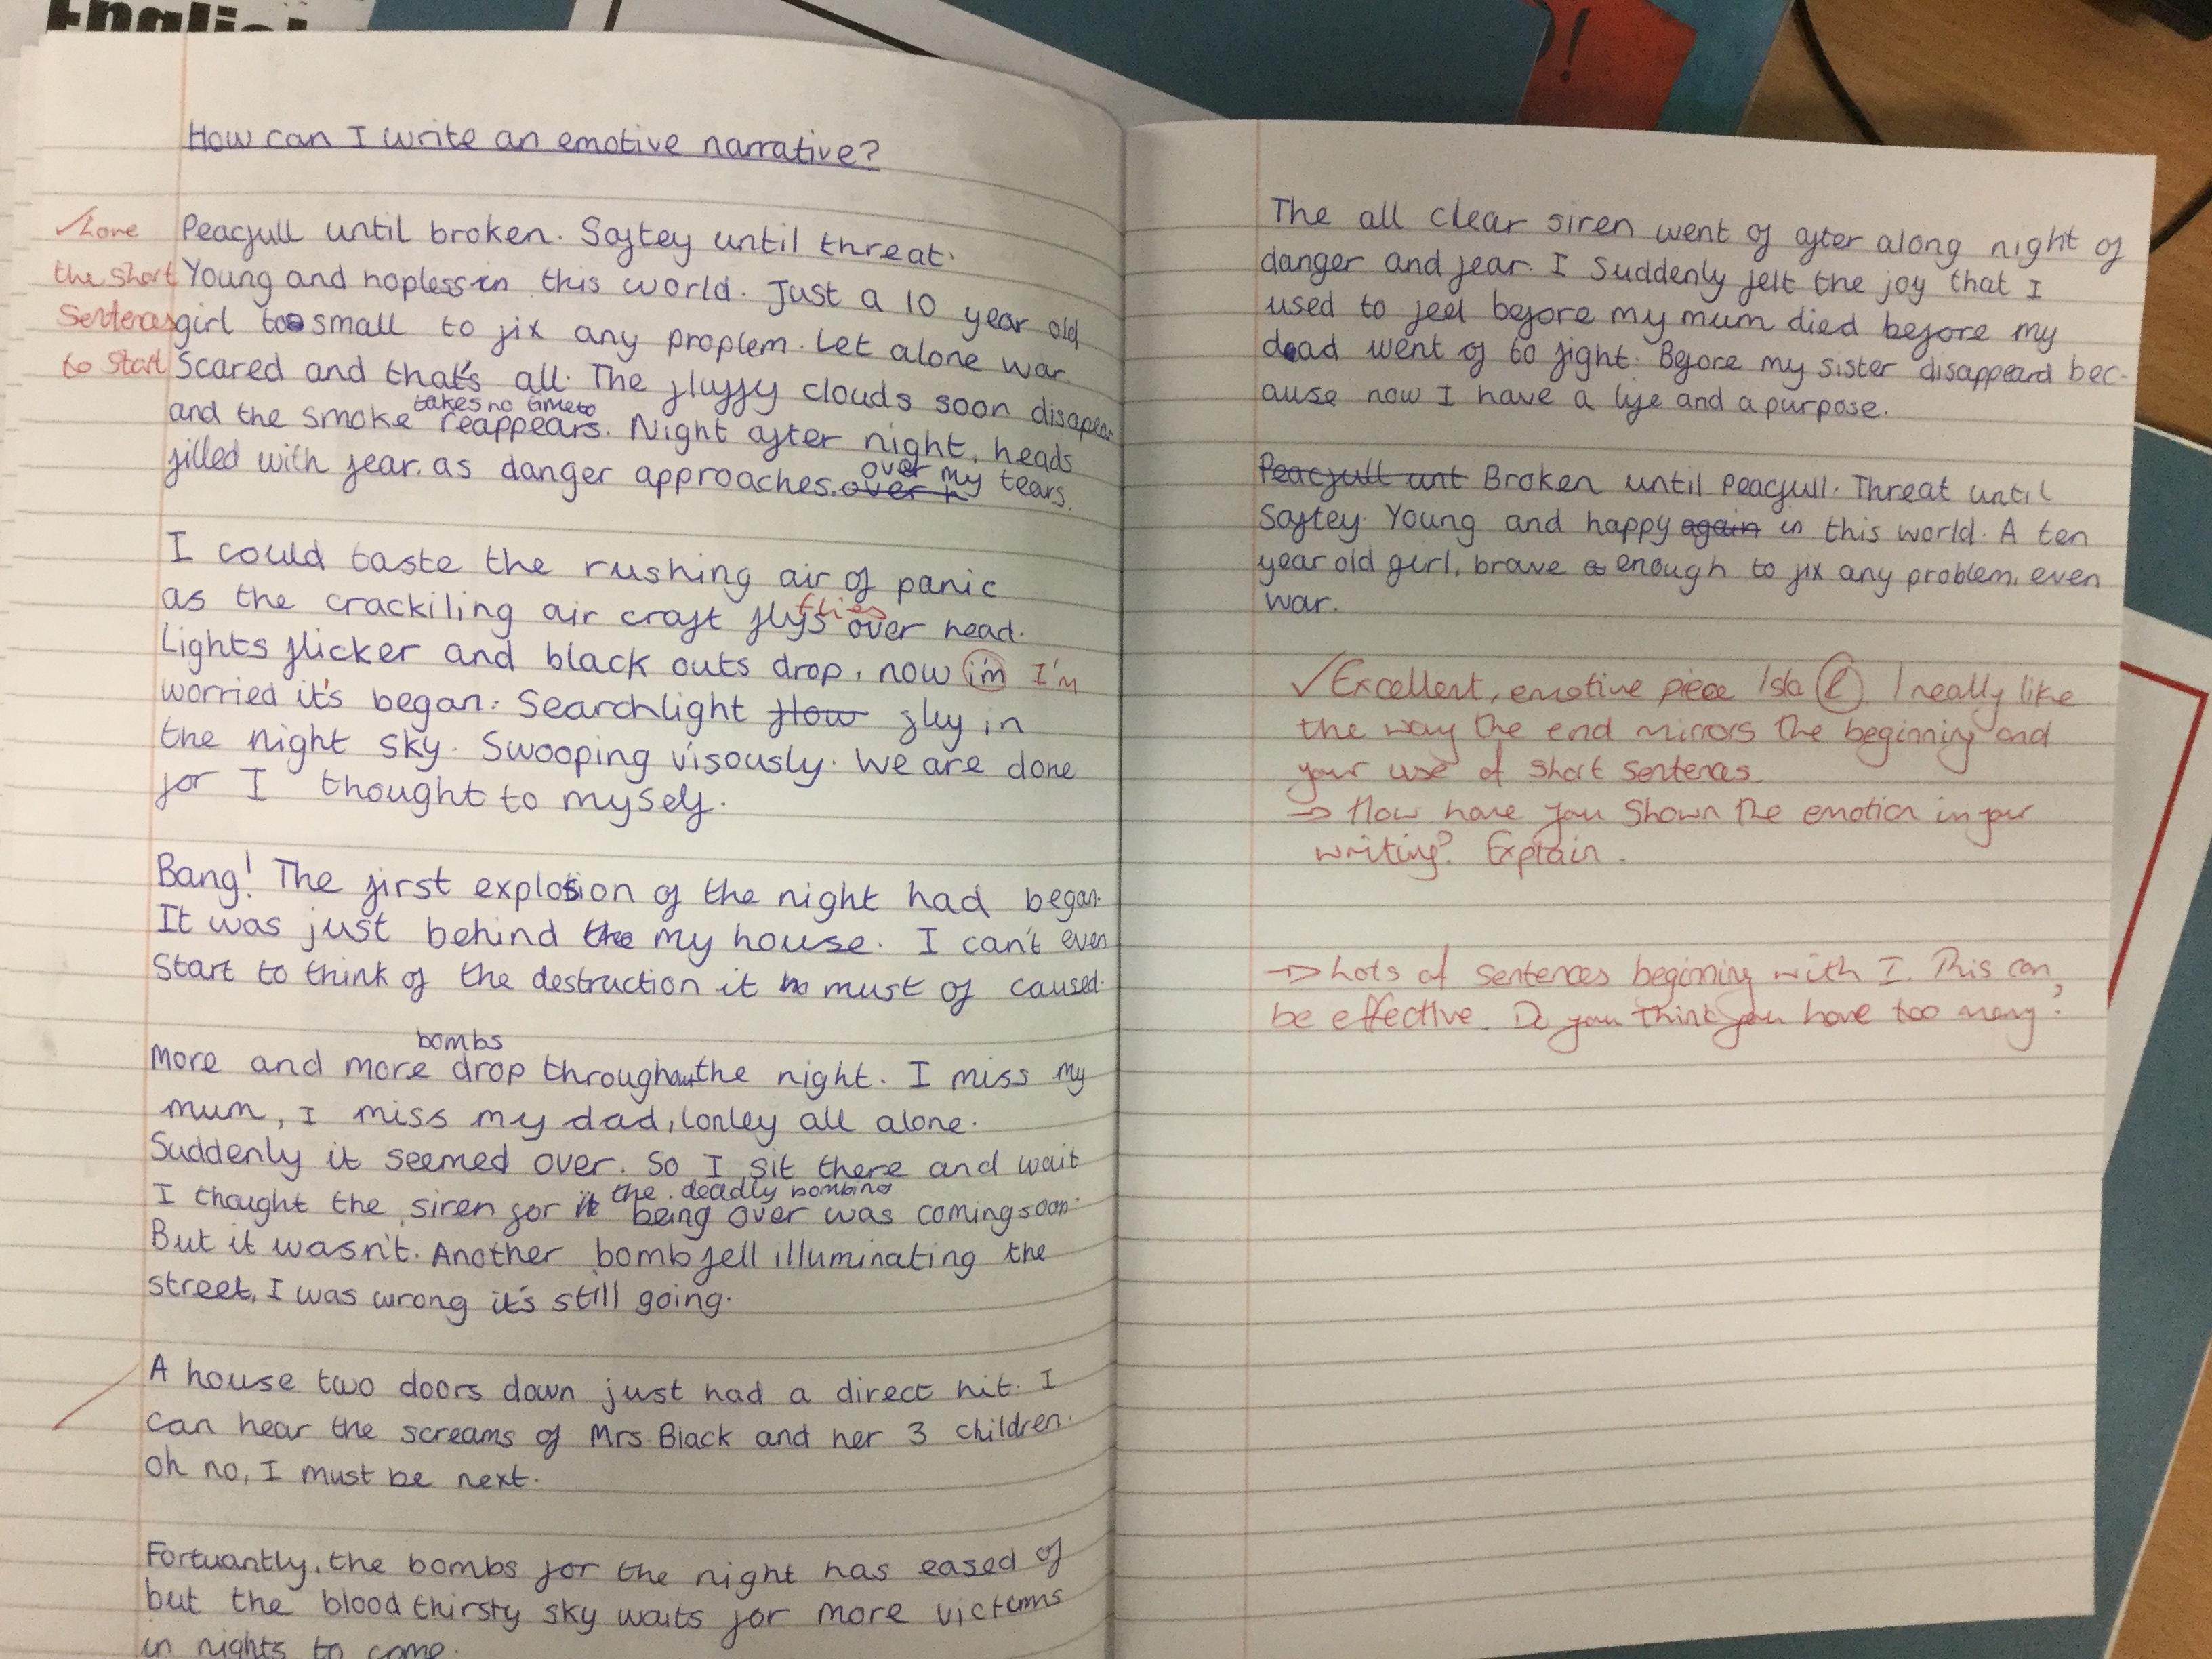 English
!
How can I write an emotive narrative?
✓ Love
the short
Sentences
to start
Peacfull until broken. Saftey until threat.
Young and hopless in this world. Just a 10 year old
girl too small to fix any proplem. Let alone war.
Scared and that's all. The fluffy clouds soon disapear
and the smoke takes no time to reappears. Night after night, heads
filled with fear, as danger approaches. over my tears.
I could taste the rushing air of panic
as the crackiling air craft flys flies over head.
Lights flicker and black outs drop, now im I'm
worried it's began. Searchlight flow fly in
the night sky. Swooping visously. We are done
for I thought to myself.
Bang! The first explosion of the night had began.
It was just behind the my house. I can't even
Start to think of the destruction it must of caused.
More and more bombs drop throughout the night. I miss my
mum, I miss my dad, lonley all alone.
Suddenly it seemed over. So I sit there and wait
I thought the siren for it the deadly bombing being over was coming soon.
But it wasn't. Another bomb fell illuminating the
street, I was wrong it's still going.
A house two doors down just had a direct hit. I
can hear the screams of Mrs Black and her 3 children.
oh no, I must be next.
Fortuantly, the bombs for the night has eased of
but the blood thirsty sky waits for more victims
in nights to come.
The all clear siren went of after along night of
danger and fear. I suddenly felt the joy that I
used to feel before my mum died before my
dad went of to fight. Before my sister disappeard bec-
ause now I have a life and a purpose.
Peacfull unt Broken until peacfull. Threat until
Saftey. Young and happy again in this world. A ten
year old girl, brave enough to fix any problem, even
war.
✓ Excellent, emotive piece Isla. I really like
the way the end mirrors the beginning and
your use of short sentences.
→ How have you shown the emotion in your
writing? Explain.
→ Lots of sentences beginning with I. This can
be effective. Do you think you have too many?